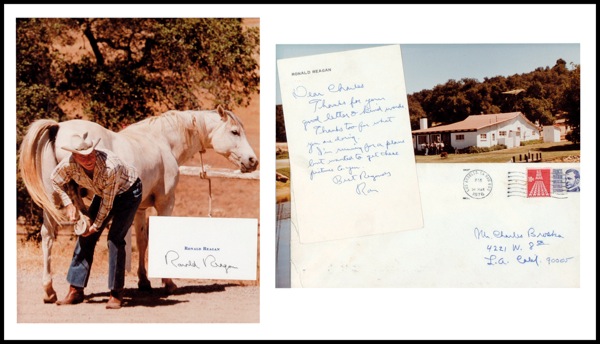 RONALD REAGAN
Dear Charles
Thanks for your
good letter & kind words
Thanks too for what
you are doing.
I'm running for a plane
but wanted to get these
pictures to you.
Best Regards
Ron
RONALD REAGAN
Ronald Reagan
PM
1976
Mr. Charles
4221 W. 8th
L.A. Calif. 90005